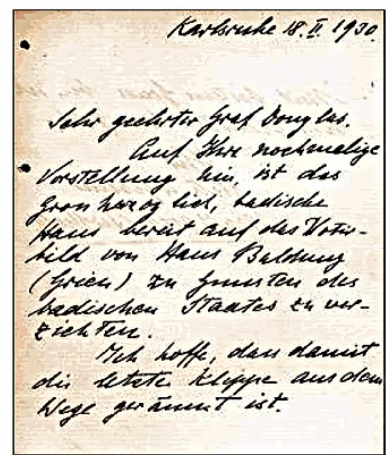 Karlsruhe 18. II. 1930
Sehr geehrter Graf Douglas.
Auf Ihre nochmalige
Vorstellung hin, ist das
Grossherzoglich, badische
Haus bereit auf das Votiv-
bild von Hans Baldung
(Grien) zu Gunsten des
badischen Staates zu ver-
zichten.
Ich hoffe, dass damit
die letzte Klippe aus dem
Wege geräumt ist.